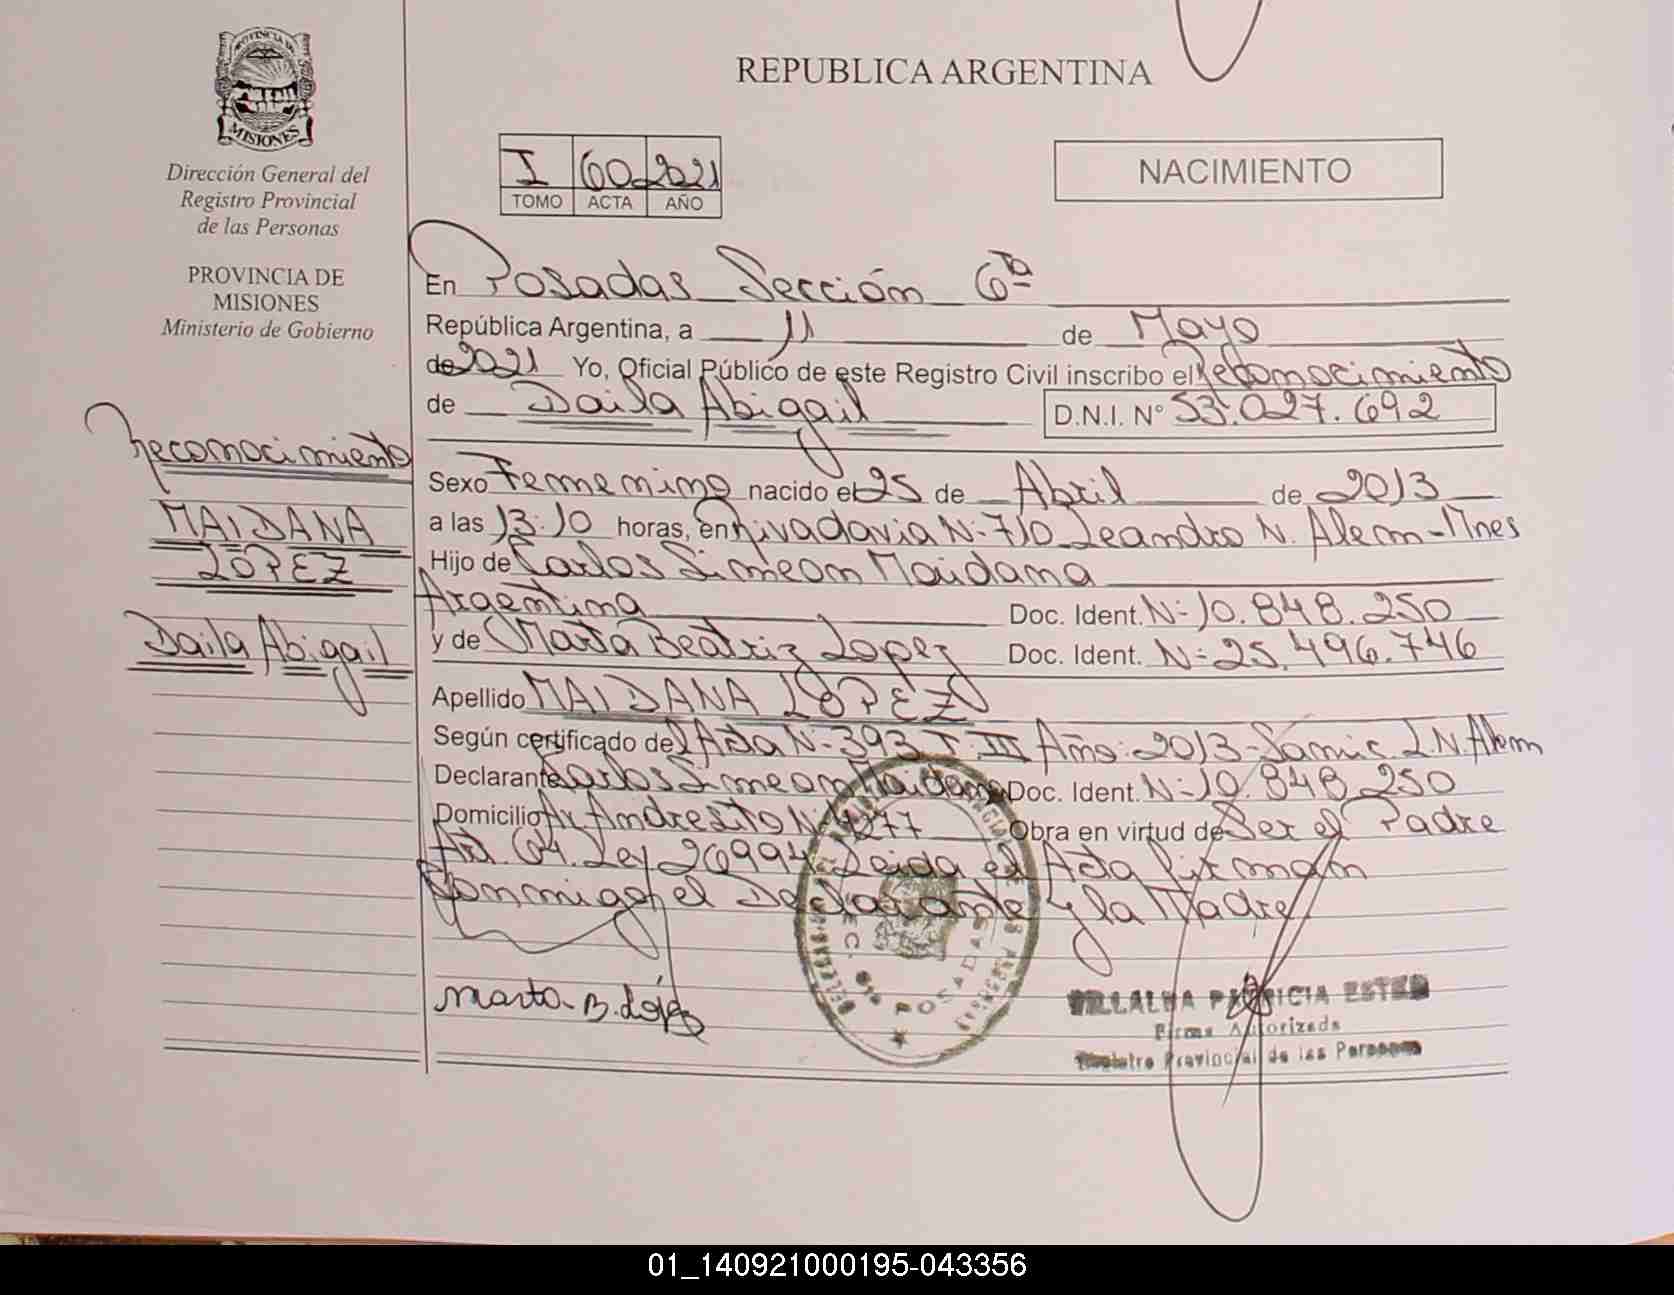 PROVINCIA DE
MISIONES
Dirección General del
Registro Provincial
de las Personas
PROVINCIA DE
MISIONES
Ministerio de Gobierno
Reconocimiento
MAIDANA
LÓPEZ
Daila Abigail
REPUBLICA ARGENTINA
I 60 2021
TOMO ACTA AÑO
NACIMIENTO
En Posadas Sección 6ta
República Argentina, a 11 de Mayo
de 2021 Yo, Oficial Público de este Registro Civil inscribo el Reconocimiento
de Daila Abigail D.N.I. N° 53.027.692
Sexo Femenino nacido el 25 de Abril de 2013
a las 13:10 horas, en Rivadavia N° 710 Leandro N. Alem - Mnes
Hijo de Carlos Simeon Maidana
Argentina Doc. Ident. N° 10.848.250
y de Marta Beatriz Lopez Doc. Ident. N° 25.496.746
Apellido MAIDANA LÓPEZ
Según certificado del Acta N° 393 T: III Año: 2013 - Samic L.N. Alem
Declarante Carlos Simeon Maidana Doc. Ident. N° 10.848.250
Domicilio Av. Andresito N° 4277 Obra en virtud de Ser el Padre
Art. 64. Ley 26994 Leida el Acta firman
Conmigo, el Declarante y la Madre.
Marta B. López
POSADAS
VILLALBA PATRICIA ESTER
Firma Autorizada
Registro Provincial de las Personas
01_140921000195-043356